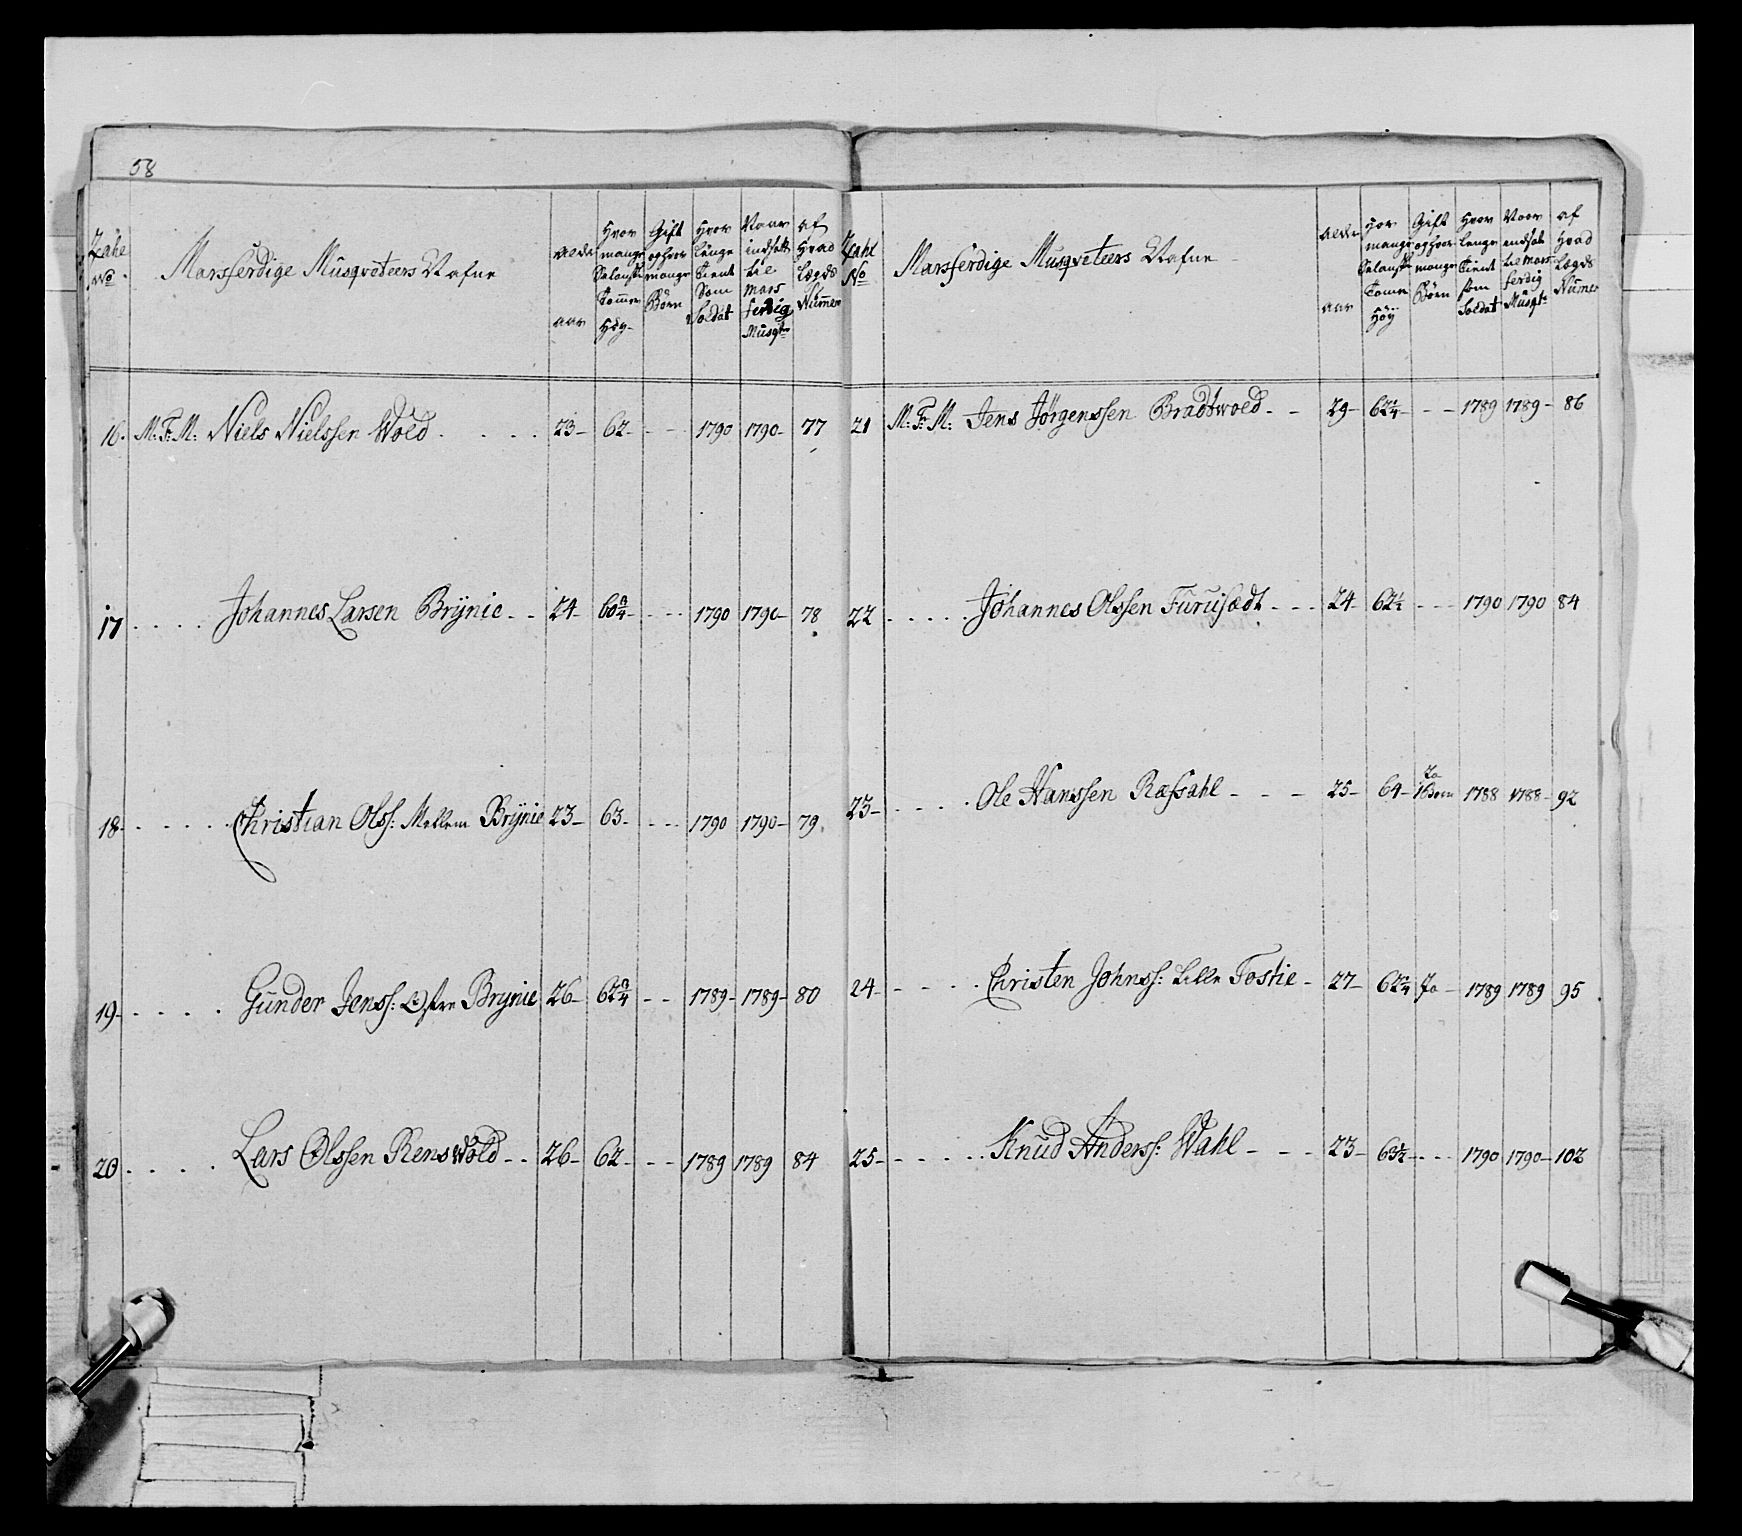 58
Zahl No. Marsferdige Musqveteers Nafne Alder aar Hvor mange Selansk Tommer Höy Gift og hvor mange Börn Hvor lenge tient som Soldat Naar indsatt til Mars ferdig Musqt. af Hvad Lægds Numer
16. M: F: M: Niels Nielssen Wold . . . . . 23 – 62 – – – 1790 1790 – 77
17 . . . . Johannes Larsen Brÿnie . . 24 – 60 3/4 – – – 1790 1790 – 78
18 – . . . . . Christian Olss: Mellem Brÿnie 23 – 63 – – – 1790 1790 – 79
19 – . . . . Gunder Jenss: Östre Brynie 26 – 62 3/4 – – 1789 – 1789 – 80
20 . . . . Lars Olssen Renswold – – 26 – 62 – – – 1789 1789 84
Zahl No Marsferdige Musqveteers Nafne Alder aar Hvor mange Selansk Tomer Höÿ Gift og hvor mange Börn Hvor lenge tient som Soldat Naar indsat til Mars ferdig Musqt. af Hvad Lægds Numer
21 M: F: M: Jens Jörgenssen Bradtwold – – 29 – 62 1/4 – – – 1789 1789 – 86
22 . . . . . Johannes Olssen Furusædt – – – 24 – 62 1/2 – – – 1790 1790 84
23 – . . . . Ole Hanssen Ræfsahl – – – 25 – 64 – Ja 1 Born 1788 1788 – 92
24 – – . . . Christen Johnss: Lille Tostie – 27 – 62 3/4 Ja – 1789 1789 95
25 – – – . . . Knud Anderss: Wahl – – – 23 – 63 1/2 – . . . 1790 1790 – 102